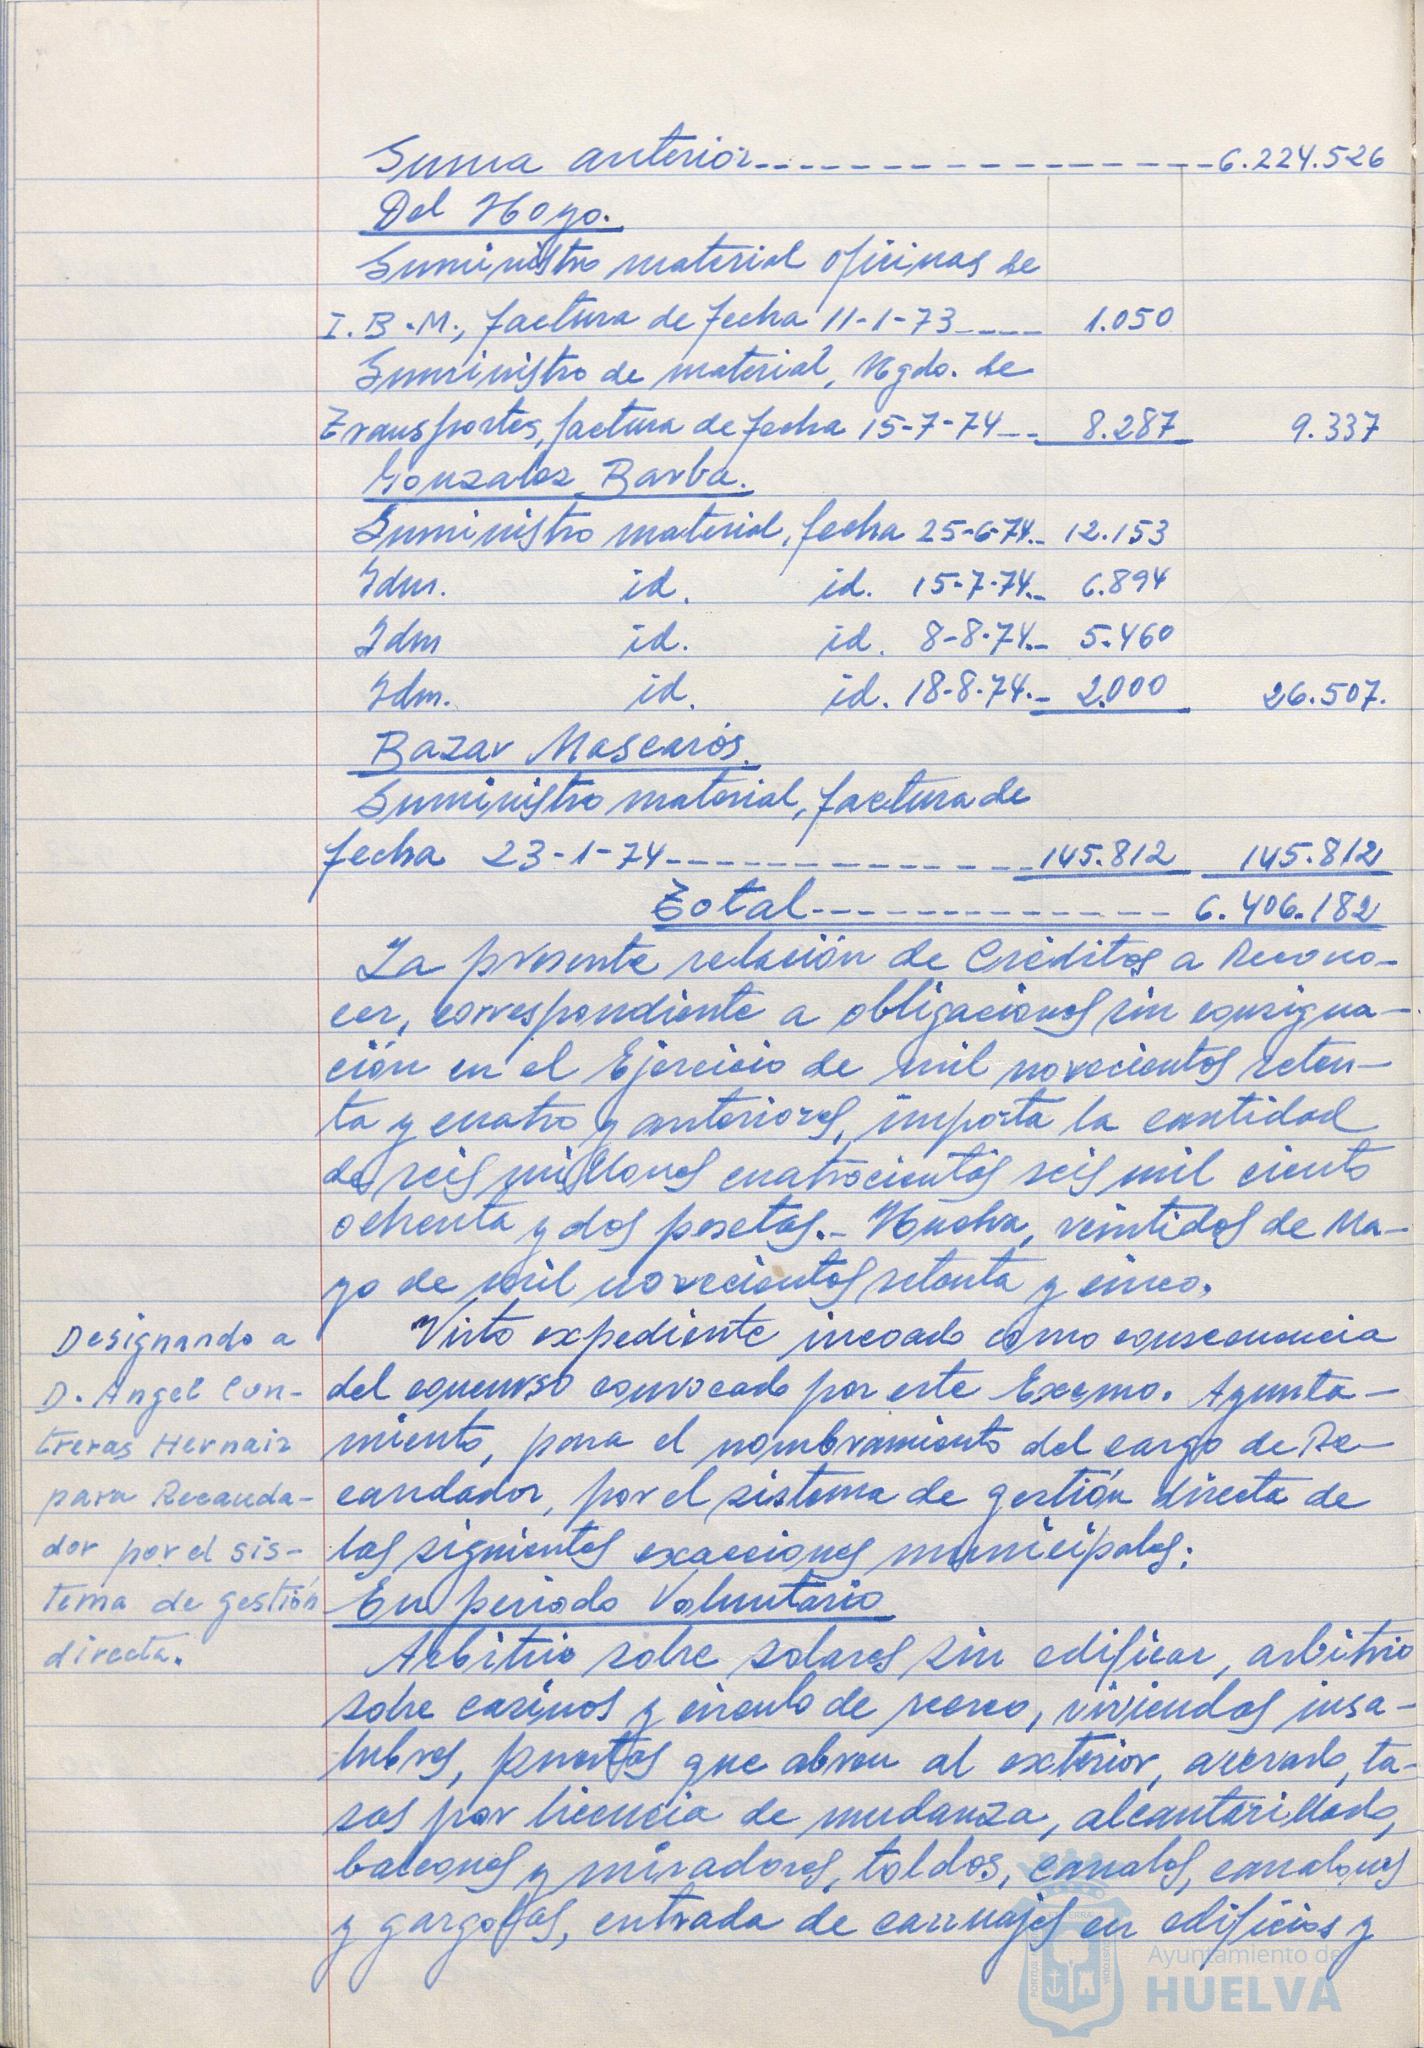 Suma anterior 6.224.526
Del Hoyo.
Suministro material oficinas de
I.B.M., factura de fecha 11-1-73 1.050
Suministro de material, Ngdo. de
Transportes, factura de fecha 15-7-74 8.287 9.337
Gonzalez Barba.
Suministro material, fecha 25-6-74.- 12.153
Idm. id. id. 15-7-74.- 6.894
Idm id. id. 8-8-74.- 5.460
Idm. id. id. 18-8-74.- 2.000 26.507.
Bazar Mascarós.
Suministro material, factura de
fecha 23-1-74 145.812 145.812
Total 6.406.182
La presente relación de Créditos a Recono-
cer, correspondiente a obligaciones sin consigna-
ción en el Ejercicio de mil novecientos seten-
ta y cuatro y anteriores, importa la cantidad
de seis millones cuatrocientos seis mil ciento
ochenta y dos pesetas.- Huelva, veintidos de Ma-
yo de mil novecientos setenta y cinco.
Designando a
D. Angel Con-
treras Hernaiz
para Recauda-
dor por el sis-
tema de gestión
directa.
Visto expediente incoado como consecuencia
del concurso convocado por este Excmo. Ayunta-
miento, para el nombramiento del cargo de Re-
caudador, por el sistema de gestión directa de
las siguientes exacciones municipales:
En periodo Voluntario
Arbitrio sobre solares sin edificar, arbitrio
sobre casinos y circulo de recreo, viviendas insa-
lubres, puertas que abren al exterior, acerado, ta-
sas por licencia de mudanza, alcantarillado,
balcones y miradores, toldos, canales, canalones
y gargolas, entrada de carruajes en edificios y
Ayuntamiento de
HUELVA